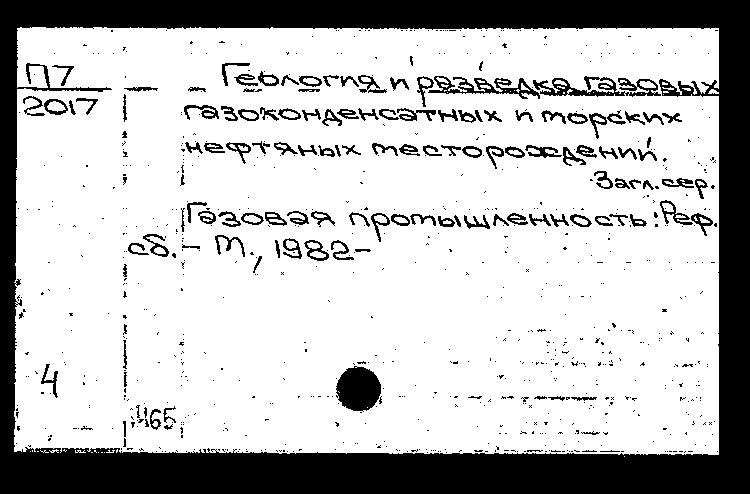 П7
2017
Геология и разведка газовых
газоконденсатных и морских
нефтяных месторождений.
Загл. сер.
Газовая промышленность: Реф.
сб. – М., 1982–
4
1465